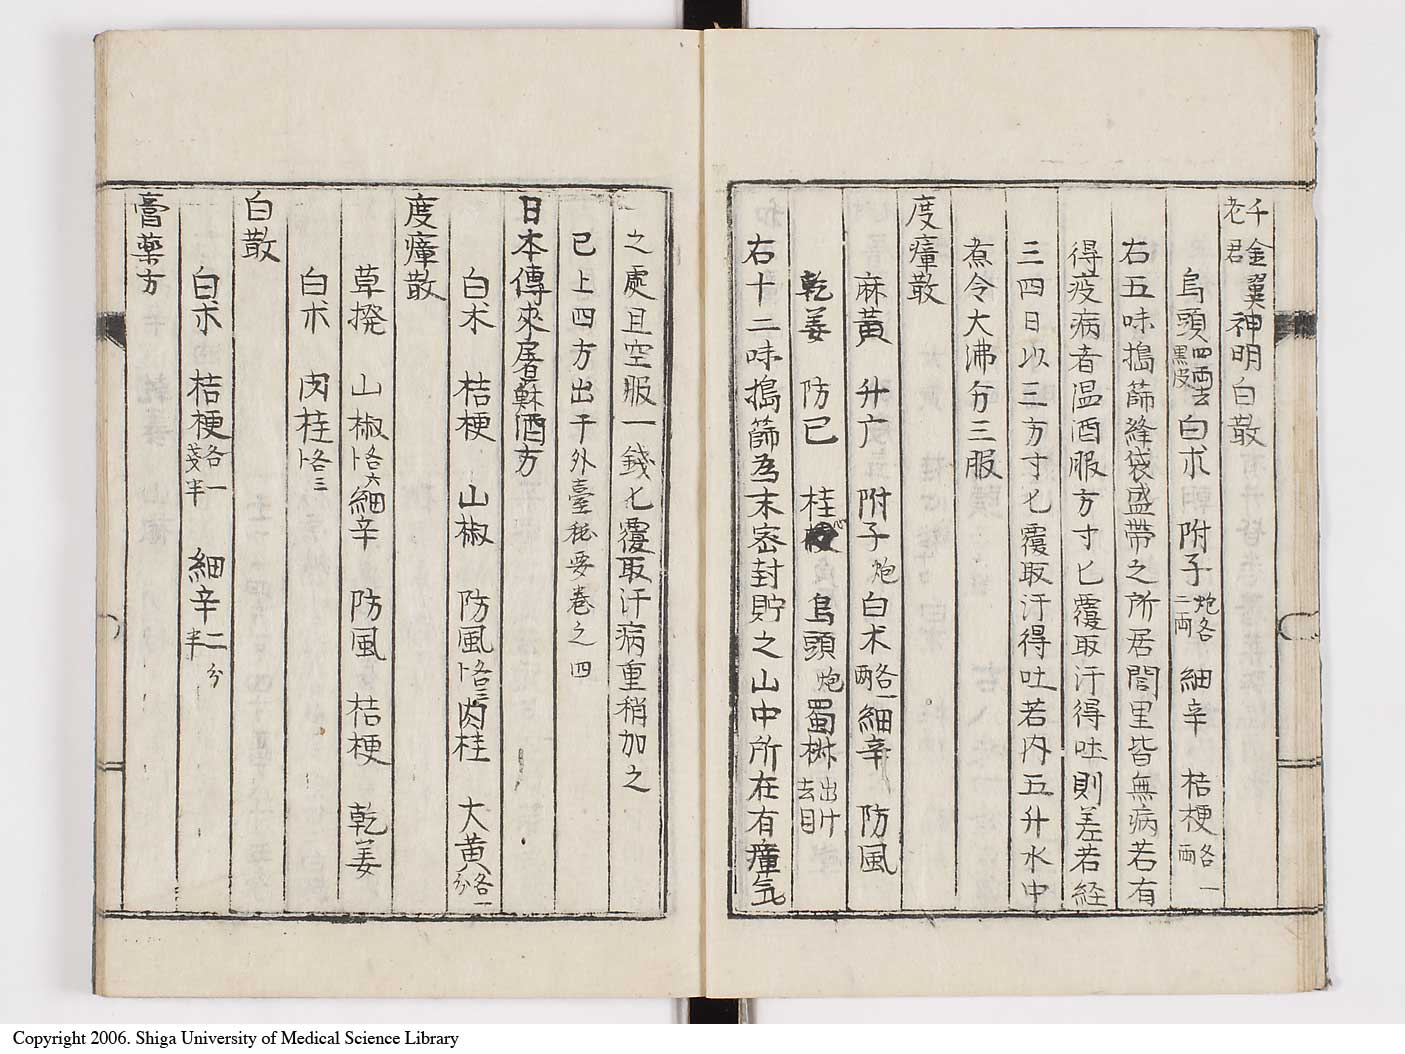 千金翼神明白散
老君
烏頭四両去黒皮白朮附子炮各二両細辛桔梗各一両
右五味搗篩縫袋盛帯之所居閭里皆無病若有
得疫病者温酒服方寸匕覆取汗得吐則差若経
三四日以三方寸匕覆取汗得吐若内五升水中
煮令大沸分三服
度瘴散
麻黄升广附子炮白朮各一両細辛防風
乾姜防已桂烏頭炮蜀椒出汁去目
右十二味搗篩為末密封貯之山中所在有瘴気
之処且空服一錢匕覆取汗病重稍加之
已上四方出于外臺秘要巻之四
日本傳來屠蘇酒方
白朮桔梗山椒防風各三卜肉桂大黄各一分
度瘴散
草撥山椒各六卜細辛防風桔梗乾姜
白朮肉桂各三卜
白散
白朮桔梗各一戔半細辛二分半
膏薬方
Copyright 2006. Shiga University of Medical Science Library